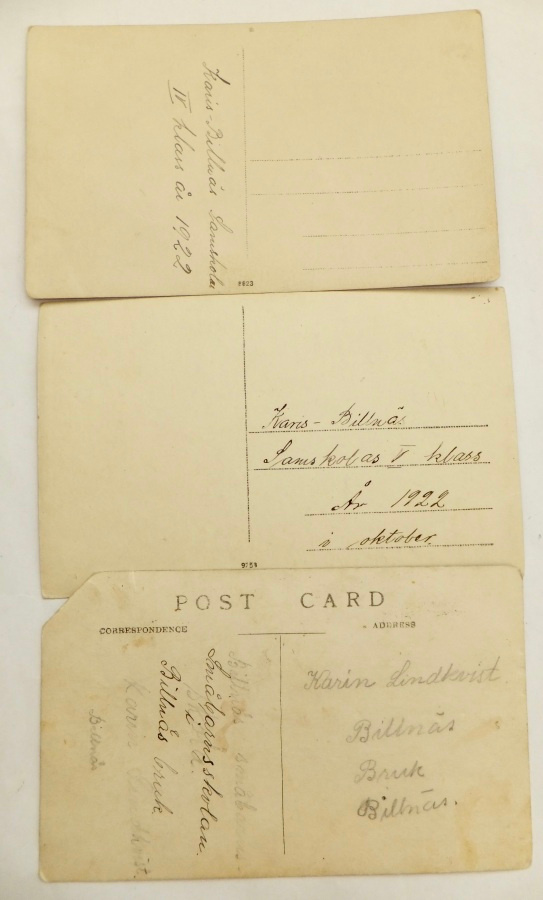 Karis-Billnäs Samskolas
IV klass år 1922
Karis-Billnäs
Samskolas V klass
År 1922
i oktober.
POST CARD
CORRESPONDENCE
ADDRESS
Småbarnsskolan.
i
Billnäs bruk.
Karin
Billnäs
Karin Lindkvist
Billnäs
Bruk
Billnäs.